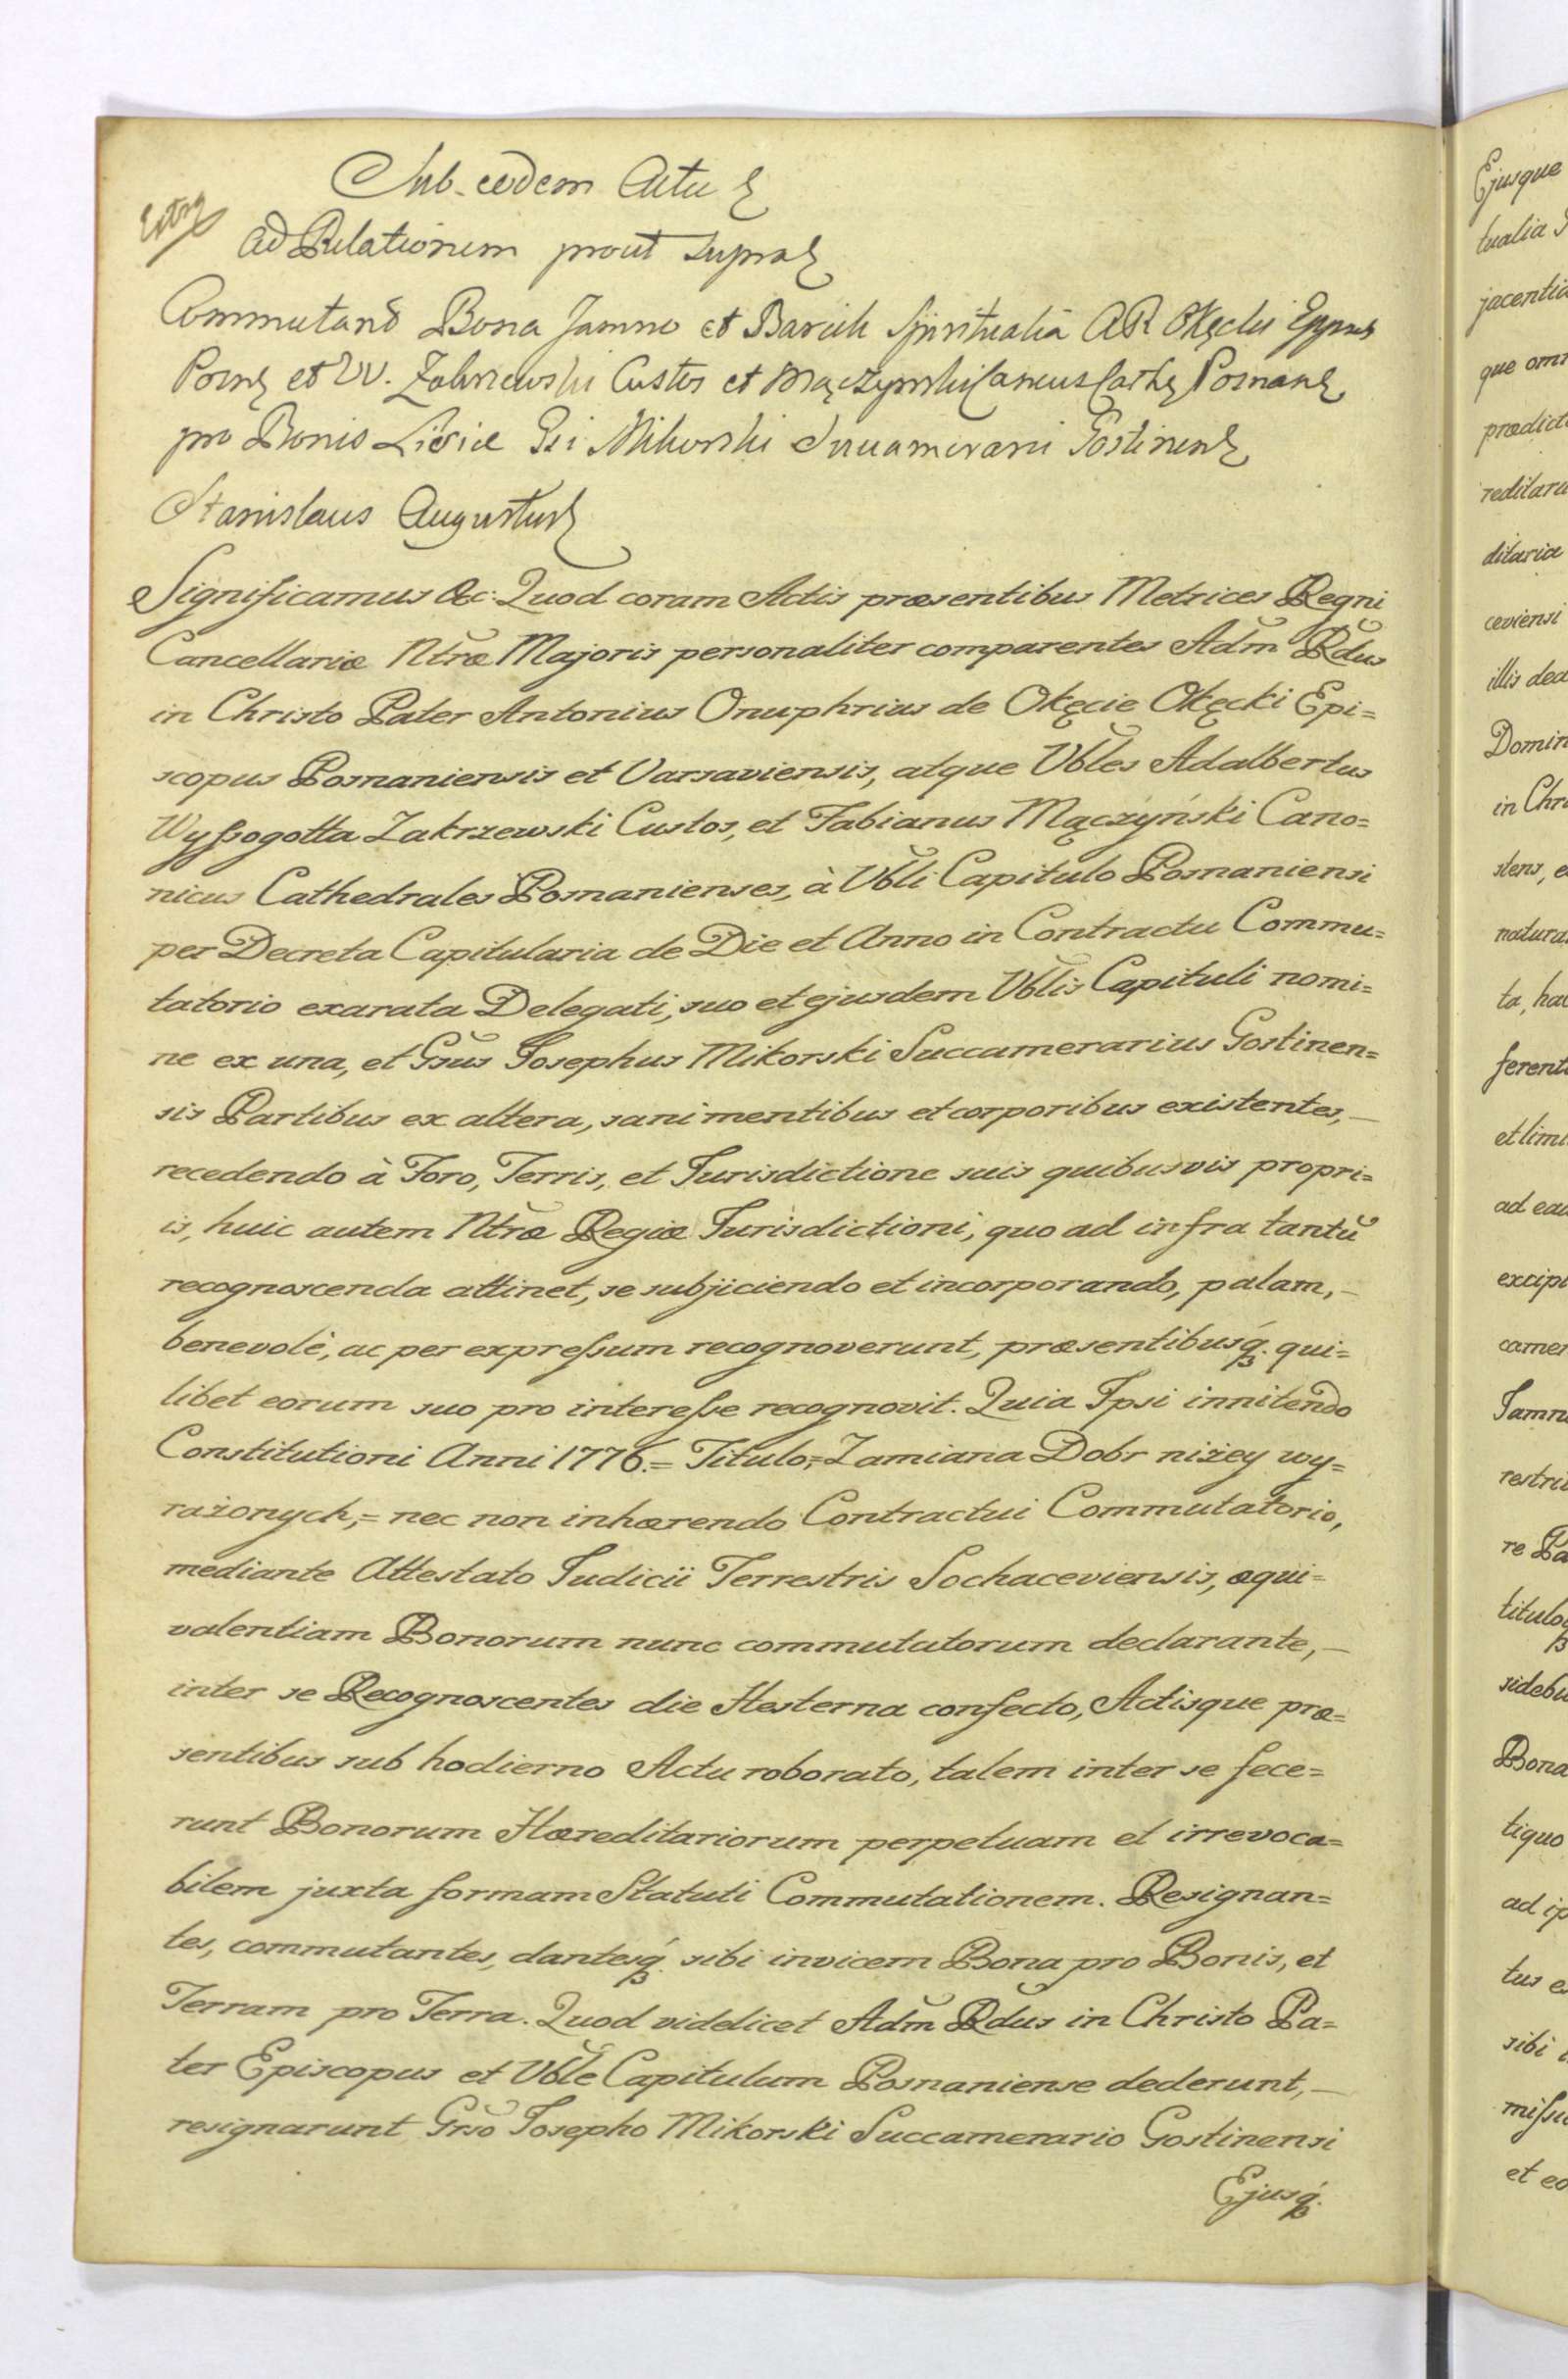 Sub eodem Actu
Extrg
ad Relationem prout supra
Commutand Bona Jamno et Bavich Spiritualia AR Okęcki Eppus
Posn et VV. Zakrzewski Custos et Mączynski Cancus Cathe Posnan
pro Bonis Lisice Gsi Mikorski Succamerarii Gostinens
Stanislaus Augustus
Significamus &c: Quod coram Actis præsentibus Metrices Regni
Cancellariæ Ntræ Majoris personaliter comparentes Adm̃ Rdus
in Christo Pater Antonius Onuphrius de Okęcie Okęcki Epi=
scopus Posnaniensis et Varsaviensis, atque Vbles Adalbertus
Wyssogotta Zakrzewski Custos, et Fabianus Mączyński Cano=
nicus Cathedrales Posnanienses, à Vbli Capitulo Posnaniensi
per Decreta Capitularia de Die et Anno in Contractu Commu=
tatorio exarata Delegati, suo et ejusdem Vblis Capituli nomi=
ne ex una, et Gsus Josephus Mikorski Succamerarius Gostinen=
sis Partibus ex altera, sani mentibus et corporibus existentes,—
recedendo à Foro, Terris, et Jurisdictione suis quibusvis propri=
is, huic autem Ntræ Regiæ Jurisdictioni, quo ad infra tantũ
recognoscenda attinet, se subjiciendo et incorporando, palam,—
benevolè, ac per expressum recognoverunt, præsentibusq́. qui=
libet eorum suo pro interesse recognovit. Quia Ipsi innitendo
Constitutioni Anni 1776.= Titulo,= Zamiana Dobr niżey wy=
rażonych,= nec non inhærendo Contractui Commutatorio,
mediante Attestato Judicii Terrestris Sochaceviensis, æqui=
valentiam Bonorum nunc commutatorum declarante,—
inter se Recognoscentes die Hesterna confecto, Actisque præ=
sentibus sub hodierno Actu roborato, talem inter se fece=
runt Bonorum Hæreditariorum perpetuam et irrevoca=
bilem juxta formam Statuti Commutationem. Resignan=
tes, commutantes, dantesq́. sibi invicem Bona pro Bonis, et
Terram pro Terra. Quod videlicet Adm̃ Rdus in Christo Pa=
ter Episcopus et Vble Capitulum Posnaniense dederunt,—
resignarunt Grso Josepho Mikorski Succamerario Gostinensi
Ejusq́.
Ejusque
tualia
jacentia
que omn
prædict
reditari
ditariæ
ceviensi
illis
Domin
in Chri
stens, e
natura
ta, ha
ferent
et limi
ad ea
excipi
camer
Jamn
restri
re Pa
titulo
sideb
Bona
tiquo
ad ip
tus e
sibi
missi
et eo